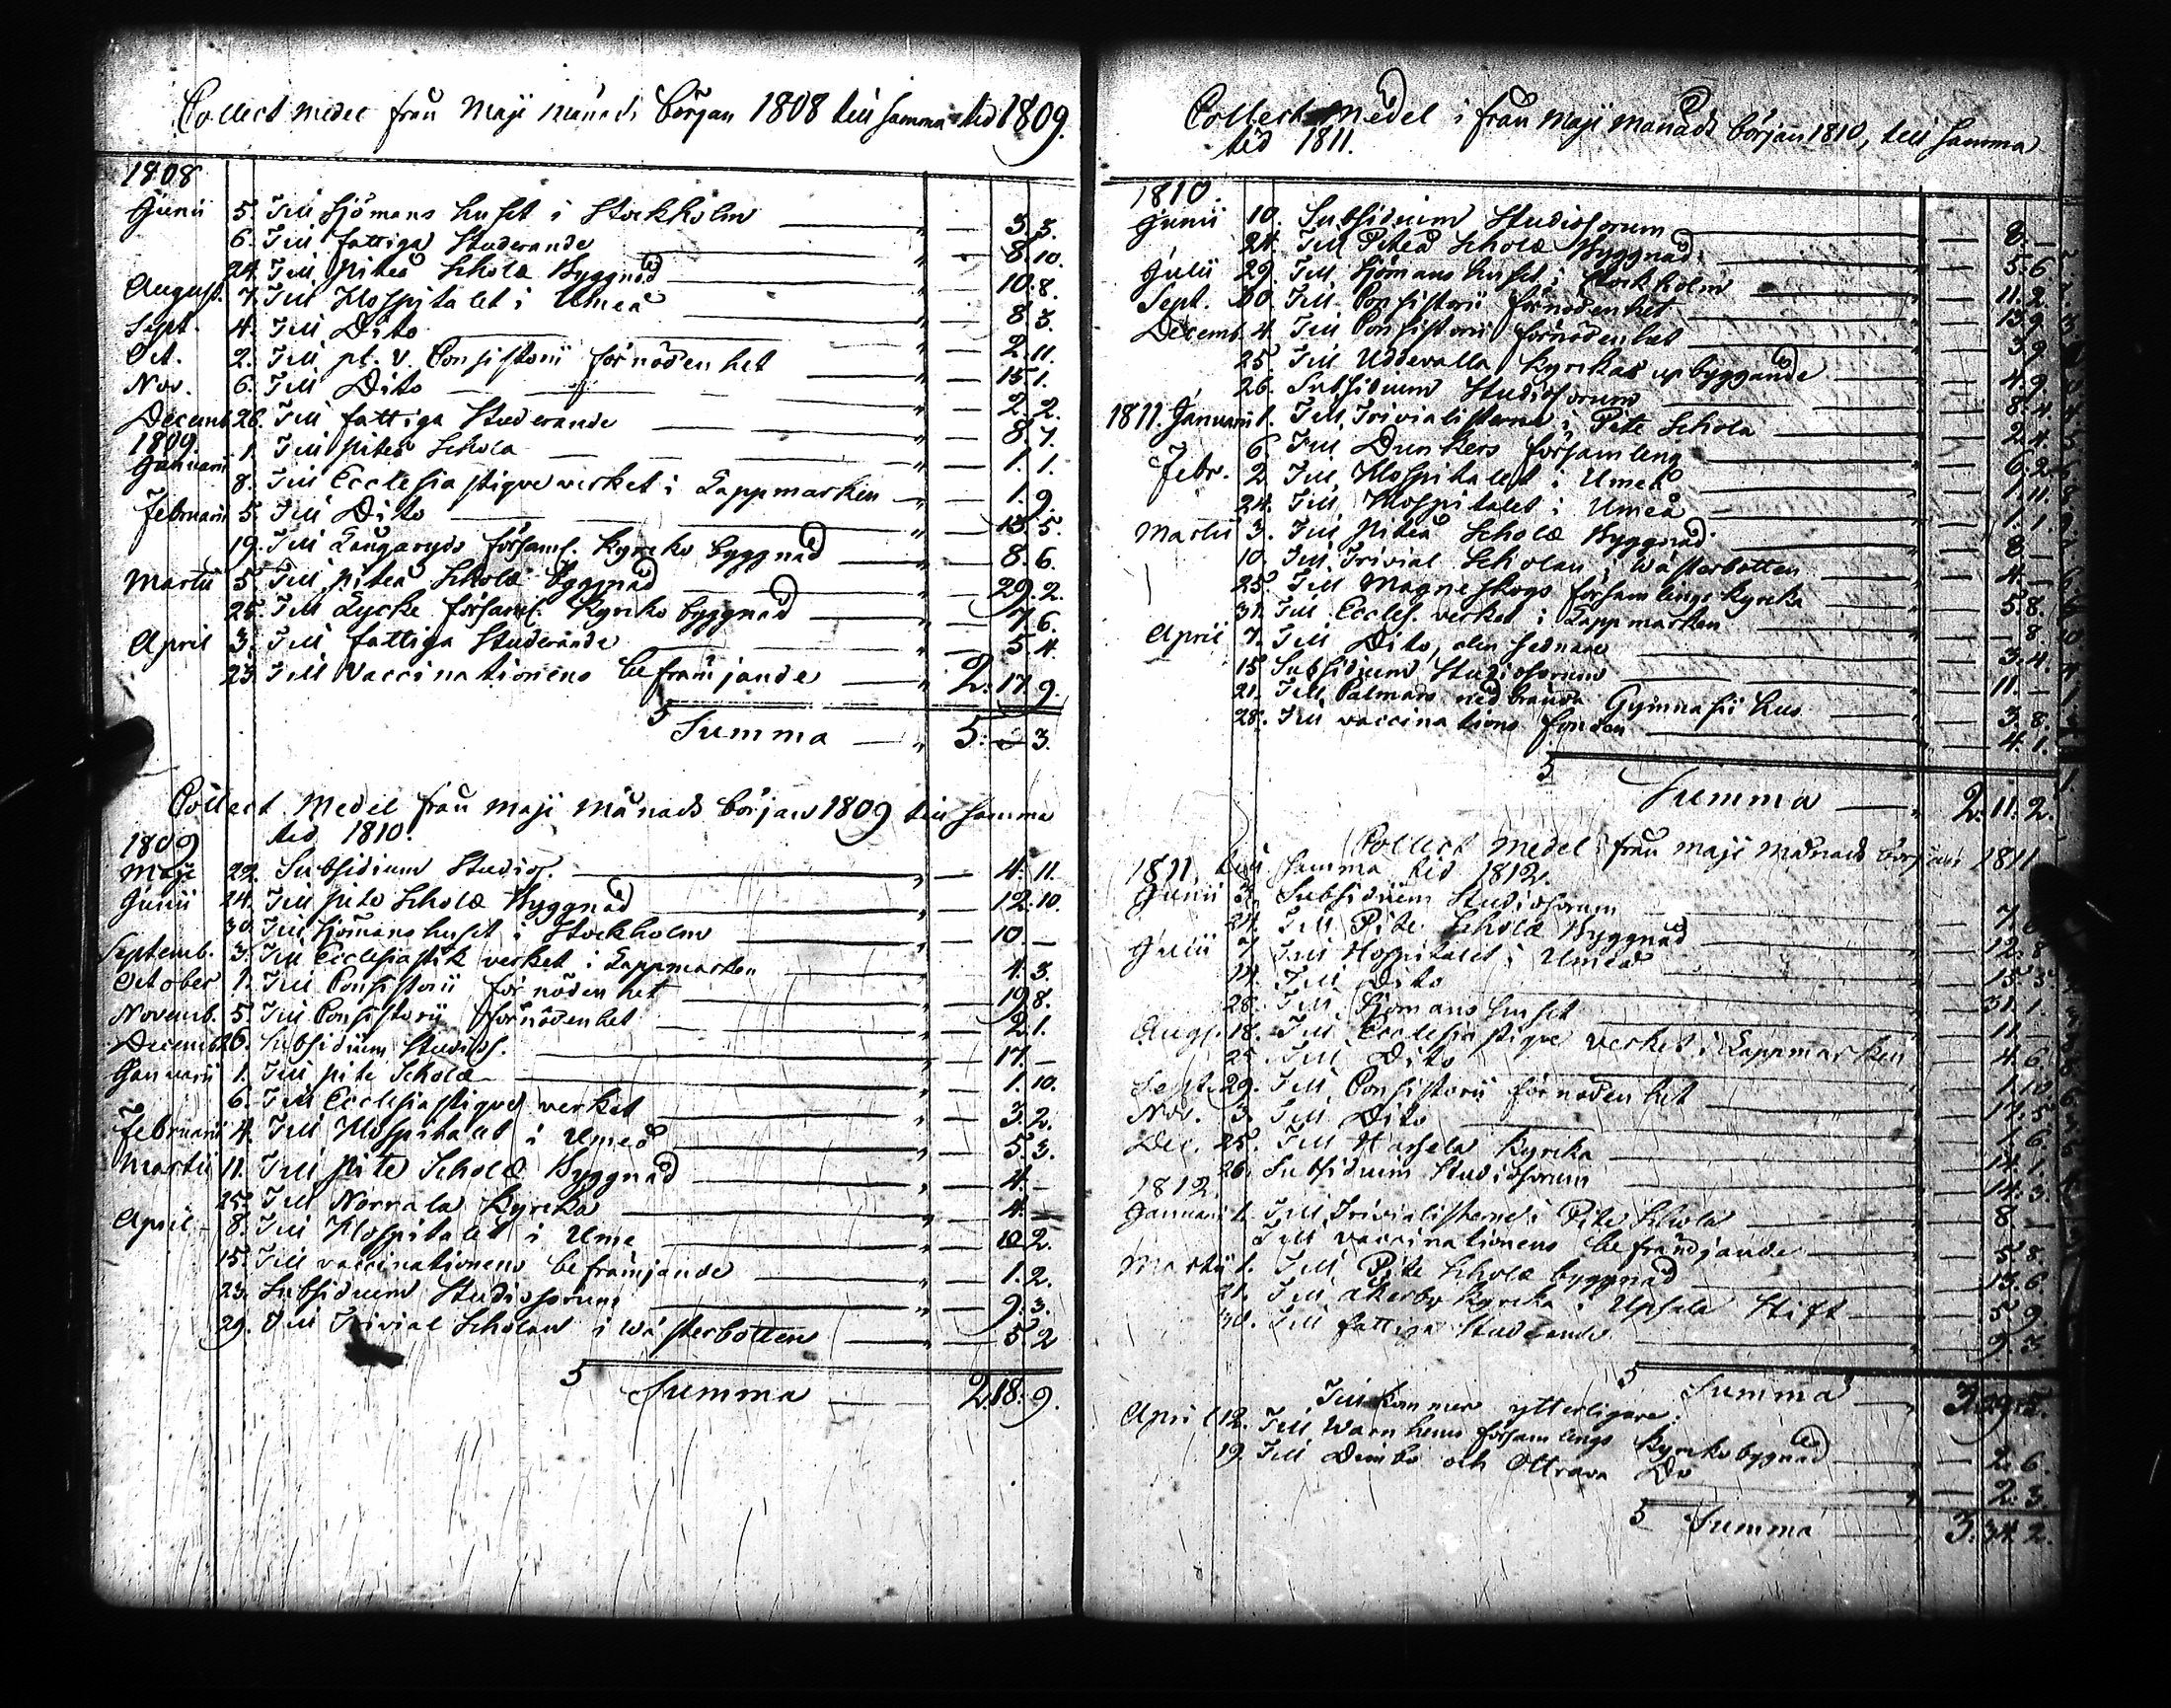 Collect medel från Maji Månads början 1808 till samma tid 1809.
1808
Junii 5. Till Sjömans huset i Stockholm — 3. 3.
6. Till fattiga Studerande — 8. 10.
24. Till Piteå Scholæ Byggnad — 10. 8.
August. 7. Till Hospitalet i Umeå — 8. 3.
Sept. 4. Till Dito — 2. 11.
Oct. 2. Till pl. V. Consistorii förnödenhet — 15. 1.
Nov. 6. Till Dito — 2. 2.
Decemb. 26. Till fattiga Studerande — 8. 7.
1809
Januarii 1. Till Piteå Schola — 1. 1.
8. Till Ecclesiastique verket i Lappmarken — 1. 9.
Februarii 5. Till Dito — 13. 5.
19. Till Långaryds församl. Kyrko byggnad — 8. 6.
Martii 5. Till Piteå Scholæ Byggnad — 29. 2.
25. Till Lycke församl. Kyrko byggnad — 7. 6.
April 3. Till fattiga Studerande — 5. 4.
23. Till Vaccinationens befrämjande — 2. 17. 9.
Summa — 5. — 3.
Collect Medel från Maji Månads början 1809 till samma
tid 1810.
1809
Maji 22. Subsidium Studios. — 4. 11.
Junii 24. Till Pite Scholæ Byggnad — 12. 10.
30. Till Sjömanshuset i Stockholm — 10. —
Septemb. 3. Till Ecclesiastik verket i Lappmarken — 4. 3.
October 1. Till Consistorii förnödenhet — 19. 8.
Novemb. 5. Till Consistorii förnödenhet — 2. 1.
Decemb. 26. Subsidium Studios. — 17. —
Januarii 1. Till Pite Scholæ — 1. 10.
6. Till Ecclesiastique verket — 3. 2.
Februarii 4. Till Hospitalet i Umeå — 5. 3.
Martii 11. Till Pite Scholæ Byggnad — 4. —
25. Till Norrala Kyrka — 4. —
April 8. Till Hospitalet i Ume — 10. 2.
15. Till vaccinationens befrämjande — 1. 2.
23. Subsidium Studiosorum — 9. 3.
29. Till Trivial Scholan i Wästerbotten — 5. 2
Summa — 2. 18. 9.
Collect Medel i från Maji Månads början 1810, till samma
tid 1811.
1810.
Junii 10. Subsidium Studiosorum — 8. —
24. Till Piteå Scholæ Byggnad — 5. 6.
Julii 29. Till Sjömans huset i Stockholm — 11. 2.
Sept. 30. Till Consistorii förnödenhet — 13. 9.
Decemb. 4. Till Consistorii förnödenhet — 3. 9.
25. Till Uddevalla Kyrkas upbyggande — 4. 9.
26. Subsidium Studiosorum — 8. 4.
1811. Januarii 1. Till Trivialisterne i Pite Schola — 2. 4.
6. Till Dunkers församling — 6. 2.
Febr. 2. Till Hospitalet i Umeå — 1. 11.
24. Till Hospitalet i Umeå — 1. 1.
Martii 3. Till Piteå Scholæ Byggnad — 8. —
10. Till Trivial Scholan i Wästerbotten — 4. —
25. Till Magneskogs församlings kyrka — 5. 8.
31. Till Eccles. verket i Lappmarken — 8.
April 7. Till Dito, den sednare — 3. 4.
15. Subsidium Studiosorum — 11. —
21. Till Calmars nedbrända Gymnasii hus — 3. 8.
28. Till vaccinations fonden — 4. 1.
Summa — 2. 11. 2.
Collect Medel från Maji Månads början 1811
1811. till samma tid 1812.
Junii 3. Subsidium Studiosorum — 7.
24. Till Pite Scholæ Byggnad — 12. 8
Julii 7. Till Hospitalet i Umeå — 15. 3.
14. Till Dito — 31. 1.
28. Till Sjömanshuset — 11. —
Augs. 18. Till Ecclesiastique verket i Lappmarken — 4. 6.
25. Till Dito — 1. 10.
Sept. 29. Till Consistorii förnödenhet — 17. 5.
Nov. 3. Till Dito — 1. 6.
Dec. 25. Till Hassela Kyrka — 14. 1.
26. Subsidium Studiosorum — 14. 3.
1812
Januari 1. Till Trivialisterne i Pite Schola — 8 —
Till vaccinationens befrämdjande — 5. 8.
Martii 1. Till Pite Scholæ byggnad — 13. 6.
21. Till Åkerby kyrka i Upsala Stift — 5. 9.
30. Till fattiga Studerande — 9. 3.
Summa —
Till kommer ytterligare.
April 12. Till Warnhems församlings Kyrkobygnad — 2. 6.
19. Till Dimbo och Ottrava Do — 2. 3.
Summa — 3. 34. 2.